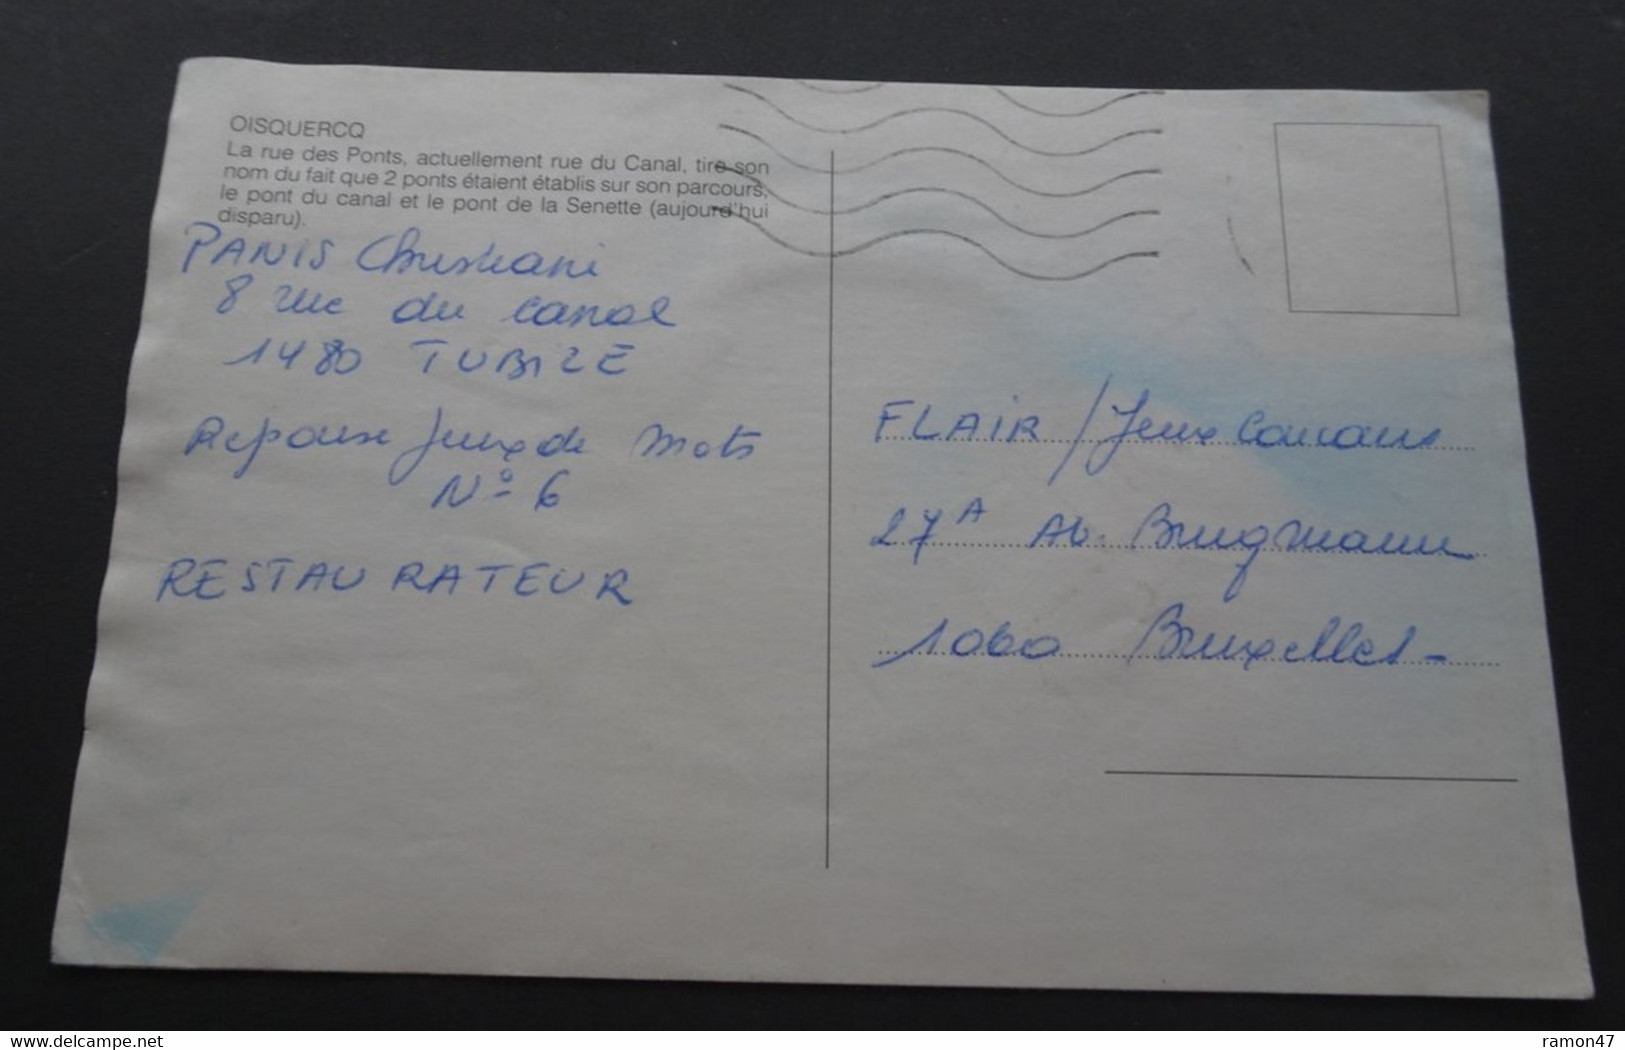 OISQUERCQ
La rue des Ponts, actuellement rue du Canal, tire son
nom du fait que 2 ponts étaient établis sur son parcours,
le pont du canal et le pont de la Senette (aujourd'hui
disparu).
PANIS Christiani
8 rue du canal
1480 TUBIZE
Reponse Jeux de Mots
N° 6
RESTAURATEUR
FLAIR / Jeux Concours
27A Av. Brugmann
1060 Bruxelles-
delcampe.net
ramon47